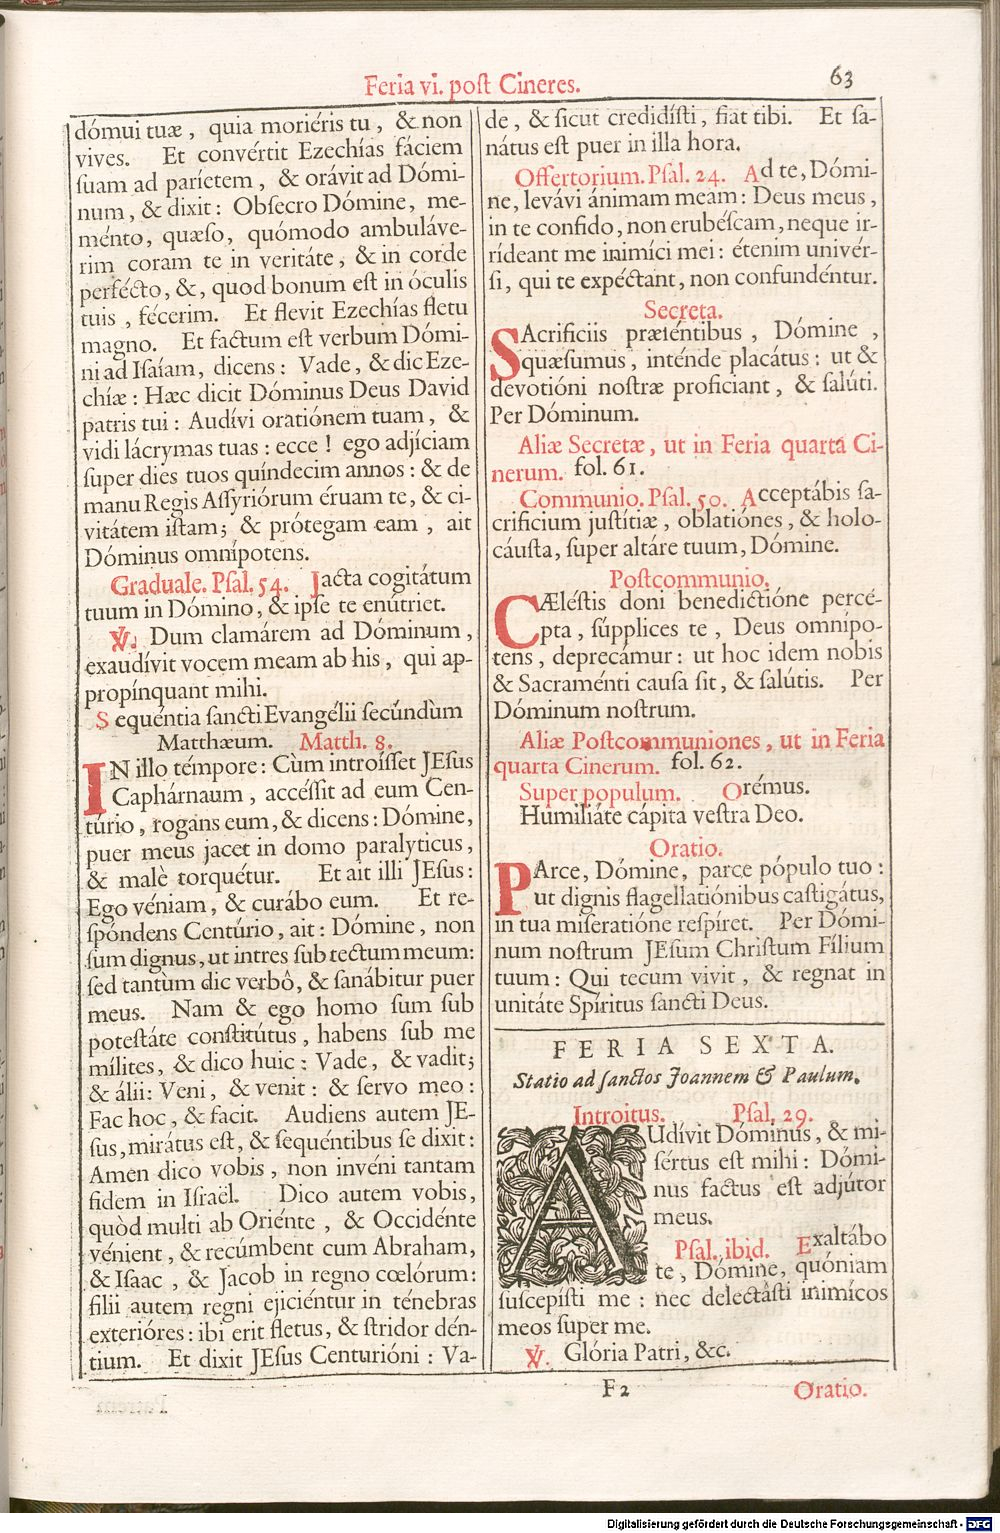 Feria vi. poſt Cineres.
63
dómui tuæ, quia moriéris tu, & non
vives. Et convértit Ezechías fáciem
ſuam ad paríetem, & orávit ad Dómi-
num, & dixit: Obſecro Dómine, me-
ménto, quæſo, quómodo ambuláve-
rim coram te in veritáte, & in corde
perfécto, &, quod bonum eſt in óculis
tuis, fécerim. Et flevit Ezechías fletu
magno. Et factum eſt verbum Dómi-
ni ad Iſaíam, dicens: Vade, & dic Eze-
chíæ: Hæc dicit Dóminus Deus David
patris tui: Audívi oratiónem tuam, &
vidi lácrymas tuas: ecce! ego adjíciam
ſuper dies tuos quíndecim annos: & de
manu Regis Aſſyriórum éruam te, & ci-
vitátem iſtam; & prótegam eam, ait
Dóminus omnípotens.
Graduale. Pſal. 54. Jacta cogitátum
tuum in Dómino, & ipſe te enútriet.
℣. Dum clamárem ad Dóminum,
exaudívit vocem meam ab his, qui ap-
propínquant mihi.
Sequéntia ſancti Evangélii ſecúndùm
Matthæum. Matth. 8.
IN illo témpore: Cùm introíſſet JEſus
Caphárnaum, accéſſit ad eum Cen-
túrio, rogans eum, & dicens: Dómine,
puer meus jacet in domo paralyticus,
& malè torquétur. Et ait illi JEſus:
Ego véniam, & curábo eum. Et re-
ſpóndens Centúrio, ait: Dómine, non
ſum dignus, ut intres ſub tectum meum:
ſed tantùm dic verbô, & ſanábitur puer
meus. Nam & ego homo ſum ſub
poteſtáte conſtitútus, habens ſub me
mílites, & dico huic: Vade, & vadit;
& álii: Veni, & venit: & ſervo meo:
Fac hoc, & facit. Audiens autem JE-
ſus, mirátus eſt, & ſequéntibus ſe dixit:
Amen dico vobis, non invéni tantam
fidem in Iſraël. Dico autem vobis,
quòd multi ab Oriénte, & Occidénte
vénient, & recúmbent cum Abraham,
& Iſaac, & Jacob in regno cœlórum:
filii autem regni ejiciéntur in ténebras
exterióres: ibi erit fletus, & ſtridor dén-
tium. Et dixit JEſus Centurióni: Va-
de, & ſicut credidíſti, fiat tibi. Et ſa-
nátus eſt puer in illa hora.
Offertorium. Pſal. 24. Ad te, Dómi-
ne, levávi ánimam meam: Deus meus,
in te confido, non erubéſcam, neque ir-
rídeant me inimíci mei: étenim univér-
ſi, qui te expéctant, non confundéntur.
Secreta.
SAcrificiis præſéntibus, Dómine,
quæſumus, inténde placátus: ut &
devotióni noſtræ proficiant, & ſalúti.
Per Dóminum.
Aliæ Secretæ, ut in Feria quarta Ci-
nerum. fol. 61.
Communio. Pſal. 50. Acceptábis ſa-
crificium juſtítiæ, oblatiónes, & holo-
cáuſta, ſuper altáre tuum, Dómine.
Poſtcommunio.
CÆléſtis doni benedictióne percé-
pta, ſúpplices te, Deus omnípo-
tens, deprecámur: ut hoc idem nobis
& Sacraménti cauſa ſit, & ſalútis. Per
Dóminum noſtrum.
Aliæ Poſtcommuniones, ut in Feria
quarta Cinerum. fol. 62.
Super populum. Orémus.
Humiliáte cápita veſtra Deo.
Oratio.
PArce, Dómine, parce pópulo tuo:
ut dignis flagellatiónibus caſtigátus,
in tua miſeratióne reſpíret. Per Dómi-
num noſtrum JEſum Chriſtum Fílium
tuum: Qui tecum vivit, & regnat in
unitáte Spíritus ſancti Deus.
FERIA SEXTA.
Statio ad ſanctos Joannem & Paulum.
Introitus. Pſal. 29.
AUdívit Dóminus, & mi-
ſértus eſt mihi: Dómi-
nus factus eſt adjútor
meus.
Pſal. ibid. Exaltábo
te, Dómine, quóniam
ſuſcepíſti me: nec delectáſti inimícos
meos ſuper me.
℣. Glória Patri, &c.
F 2
Oratio.
Digitalisierung gefördert durch die Deutsche Forschungsgemeinschaft - DFG